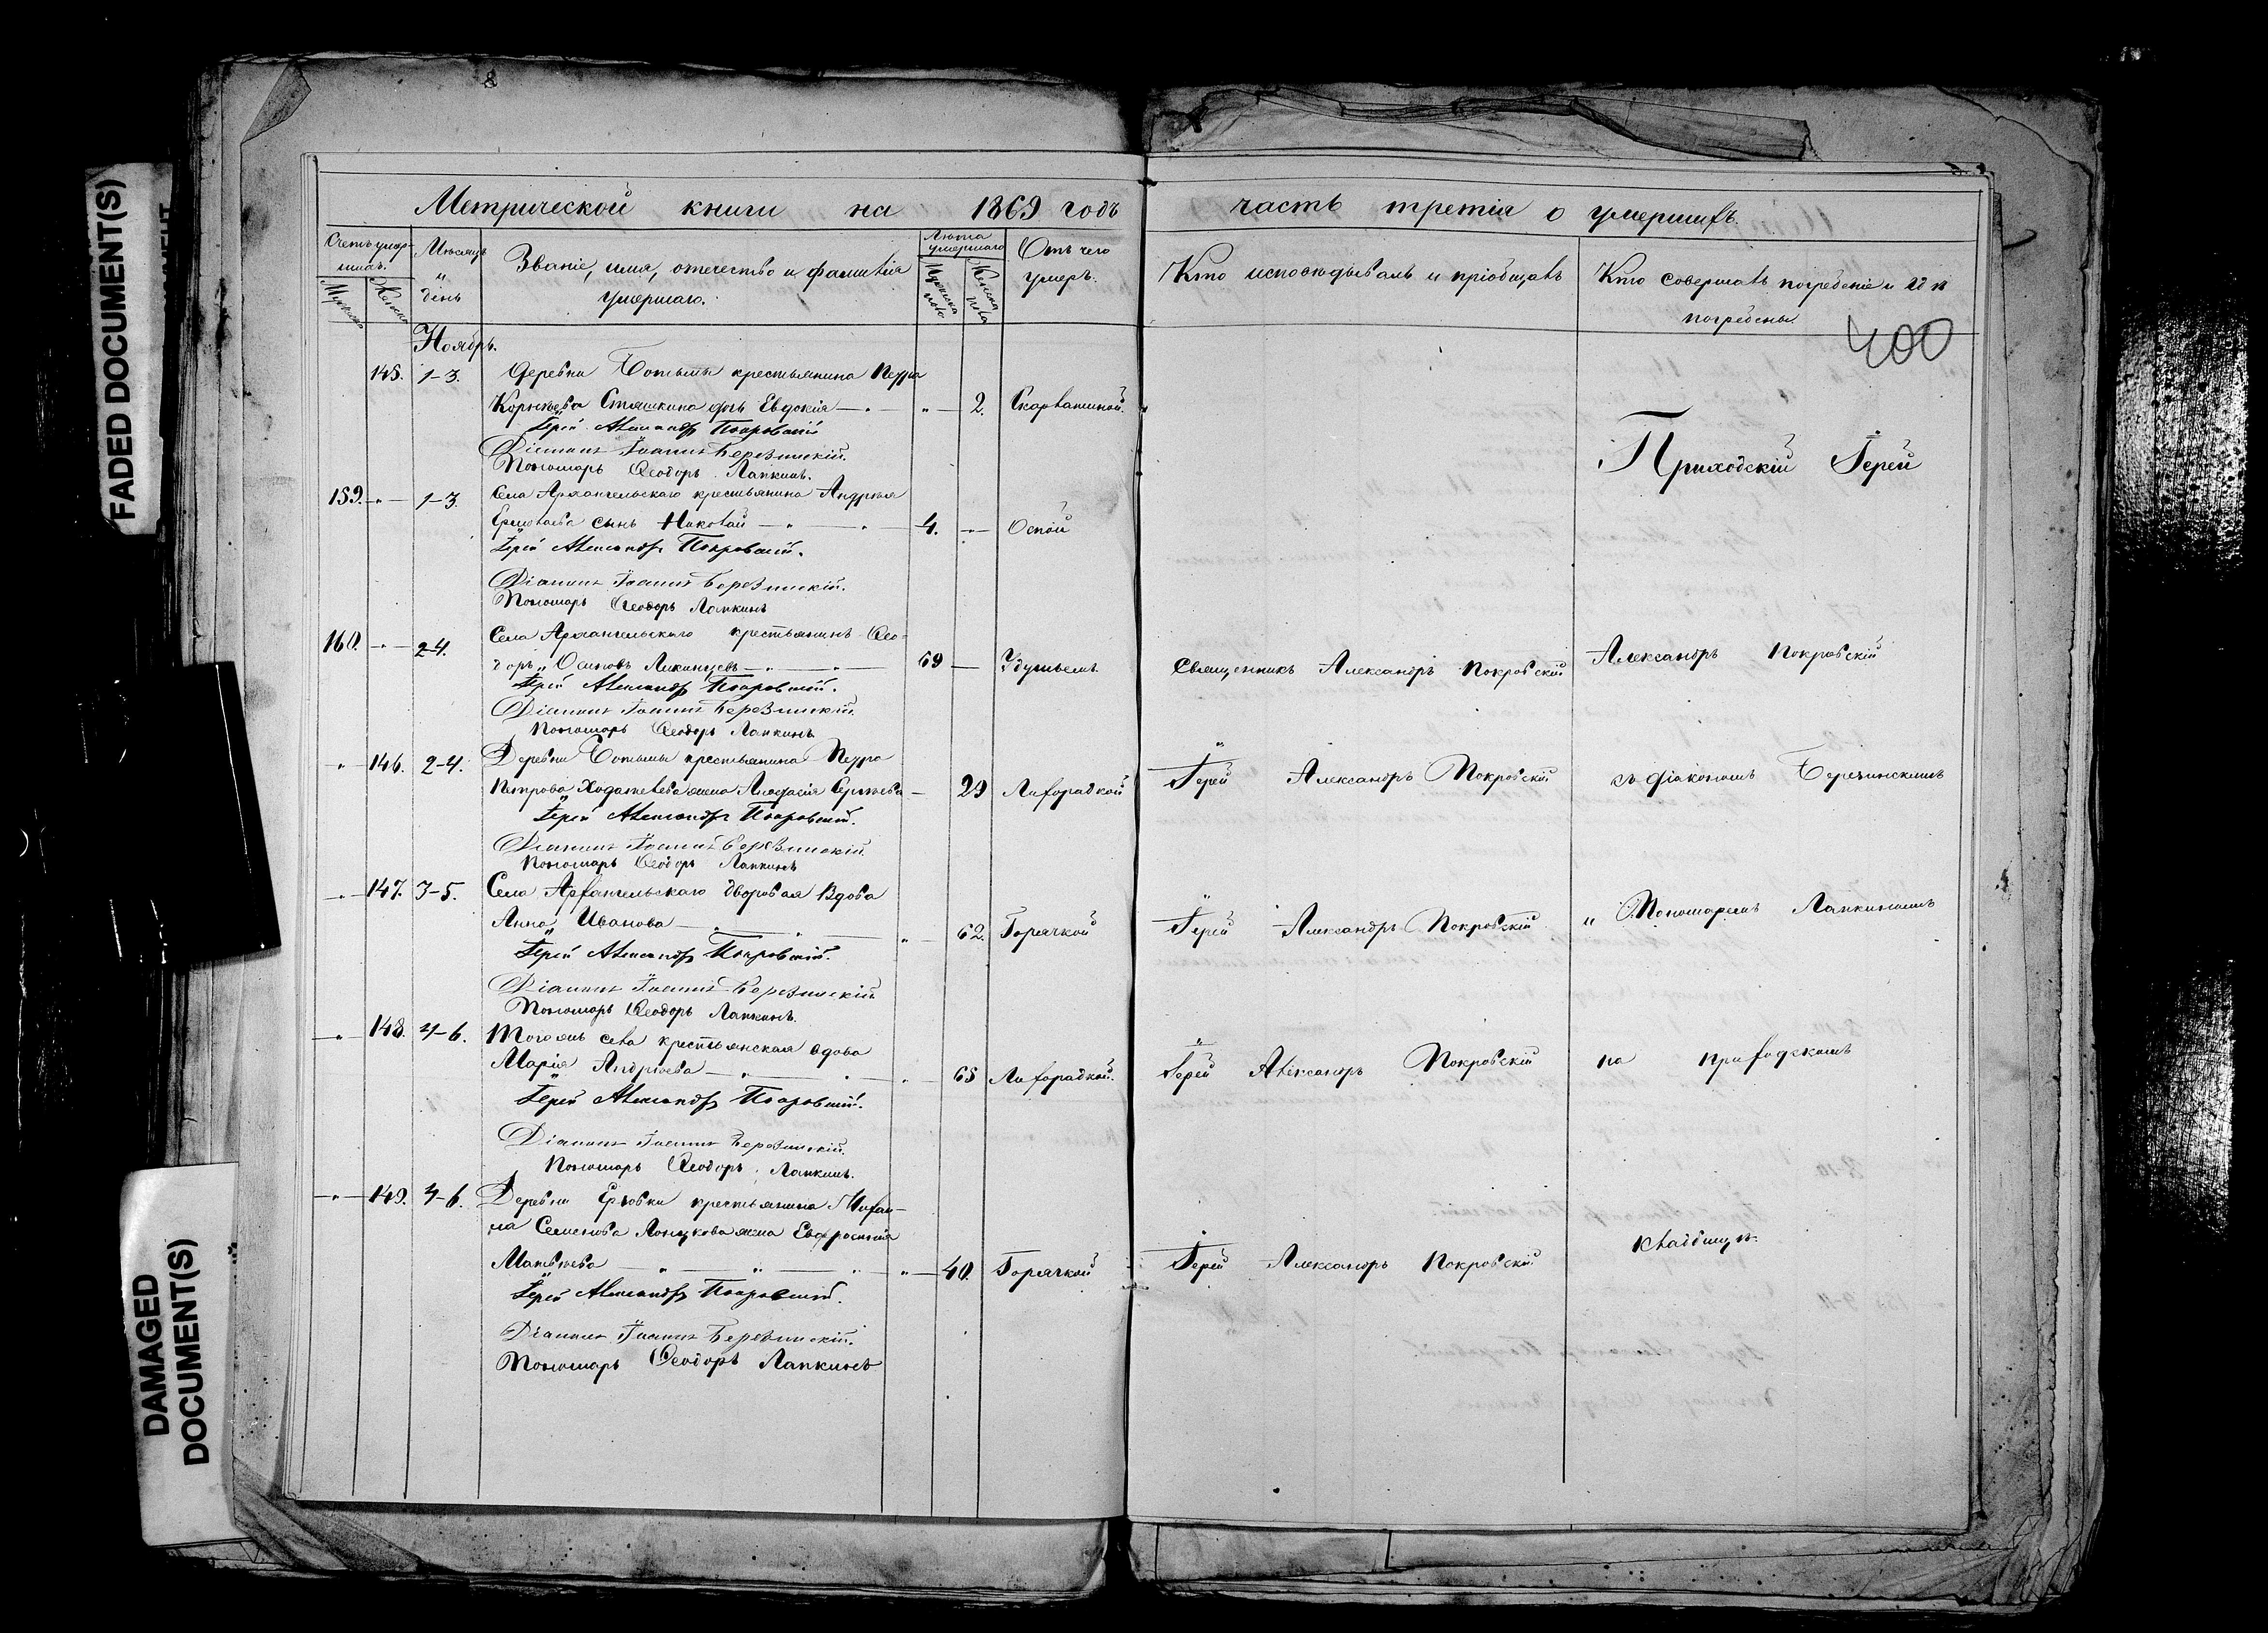 FADED DOCUMENT(S)
DAMAGED
DOCUMENT(S)
Метрической книги на 1869 годъ
Счетъ умер-
шихъ.
Мужеска
Женска
Мѣсяцъ
и
день
Званіе, имя, отечество и фамилія
умершаго.
Лѣта
умершаго
Мужеска
пола
Женска
пола
Отъ чего
умеръ.
Ноябрь.
145. 1-3. Деревни крестьянина Петра
Корнѣева Сташкина дочь Евдокія — „ — „ — 2. Скарлатиной.
Іерей Александръ Покровскій
Діаконъ Іоаннъ Березинскій.
Пономарь Ѳеодоръ Лапкинъ.
159. — „ — 1-3. Села Архангельскаго крестьянина Андрея
Ермолаева сынъ Николай — „ — „ — 4. „ — Оспой
Іерей Александръ Покровскій.
Діаконъ Іоаннъ Березинскій.
Пономарь Ѳеодоръ Лапкинъ
160. — „ — 2-4. Села Архангельскаго крестьянинъ Ѳео-
доръ Осиповъ — „ — „ — 69 — Удушьемъ
Іерей Александръ Покровскій.
Діаконъ Іоаннъ Березинскій
Пономарь Ѳеодоръ Лапкинъ
— „ — 146. 2-4. Деревни крестьянина Петра
Петрова жена Сергѣева — 29 Лихорадкой
Іерей Александръ Покровскій.
Діаконъ Іоаннъ Березинскій
Пономарь Ѳеодоръ Лапкинъ
— „ — 147. 3-5. Села Архангельскаго дворовая вдова
Анна Иванова — „ — „ — „ — 62. Горячкой
Іерей Александръ Покровскій.
Діаконъ Іоаннъ Березинскій
Пономарь Ѳеодоръ Лапкинъ.
— „ — 148. 4-6. Тогожъ села крестьянская вдова
Марія Андреева — „ — „ — „ — 65 Лихорадкой.
Іерей Александръ Покровскій.
Діаконъ Іоаннъ Березинскій.
Пономарь Ѳеодоръ Лапкинъ.
— „ — 149. 4-6. Деревни крестьянина Михаи-
ла Семенова жена Евфросинія
Матвѣева — „ — „ — „ — „ — 40. Горячкой
Іерей Александръ Покровскій.
Діаконъ Іоаннъ Березинскій.
Пономарь Ѳеодоръ Лапкинъ
часть третія о умершихъ.
Кто исповѣдывалъ и пріобщалъ
Кто совершалъ погребеніе и гдѣ
погребены.
400
Священникъ Александръ Покровскій
Іерей Александръ Покровскій
Іерей Александръ Покровскій
Іерей Александръ Покровскій
Іерей Александръ Покровскій
Приходскій Іерей
Александръ Покровскій
съ діакономъ Березинскимъ
и Пономаремъ Лапкинымъ
на приходскомъ
кладбищѣ.